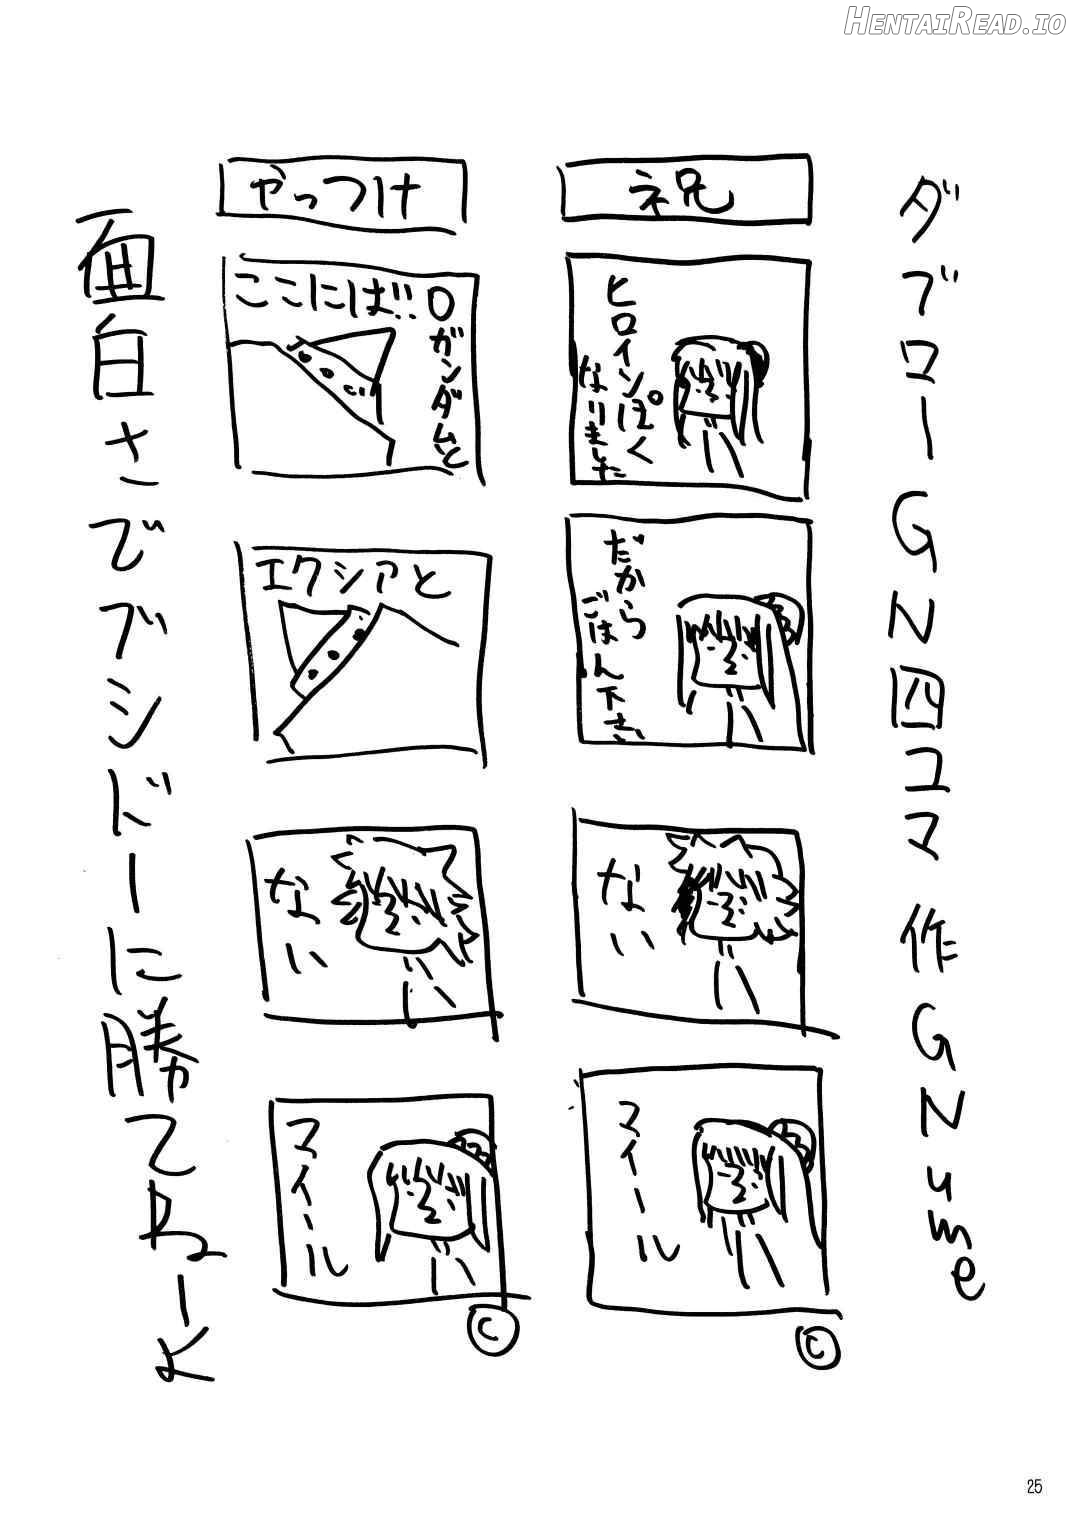 HENTAIREAD.IO
ダブローGN四コマ 作GNume
ネ兄
ヒロインぽく
なりました
だから
ごはん下さい
ない
マイール
C
やっつけ
0ガンダムと
ここには!!
エクシアと
ない
マイール
C
面白さでブシドーに勝てねーよ
25